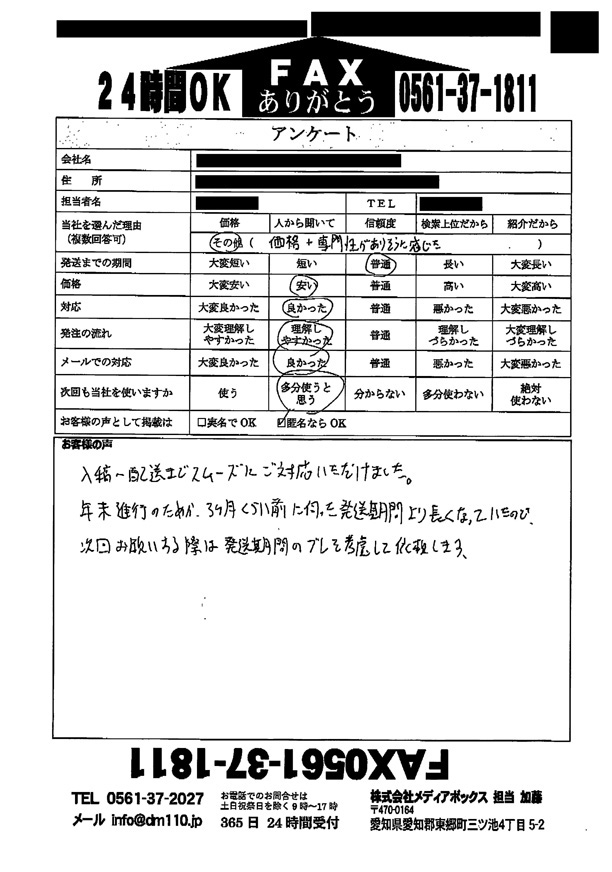 24時間OK
FAX
ありがとう
0561-37-1811
アンケート
会社名
住 所
担当者名 TEL
当社を選んだ理由
（複数回答可）
価格 人から聞いて 信頼度 検索上位だから 紹介だから
その他（ 価格＋専門性がありそうに感じた ）
発送までの期間 大変短い 短い 普通 長い 大変長い
価格 大変安い 安い 普通 高い 大変高い
対応 大変良かった 良かった 普通 悪かった 大変悪かった
発注の流れ 大変理解しやすかった 理解しやすかった 普通 理解しづらかった 大変理解しづらかった
メールでの対応 大変良かった 良かった 普通 悪かった 大変悪かった
次回も当社を使いますか 使う 多分使うと思う 分からない 多分使わない 絶対使わない
お客様の声として掲載は □実名でOK ☑匿名ならOK
お客様の声
入稿～配送までスムーズにご対応いただけました。
年末進行のためか、3ヶ月くらい前に伺った発送期間より長くなっていたので、
次回お願いする際は発送期間のブレも考慮して依頼します。
FAX0561-37-1811
TEL 0561-37-2027
メール info@dm110.jp
お電話でのお問合せは
土日祝祭日を除く9時～17時
365日 24時間受付
株式会社メディアボックス 担当 加藤
〒470-0164
愛知県愛知郡東郷町三ツ池4丁目5-2